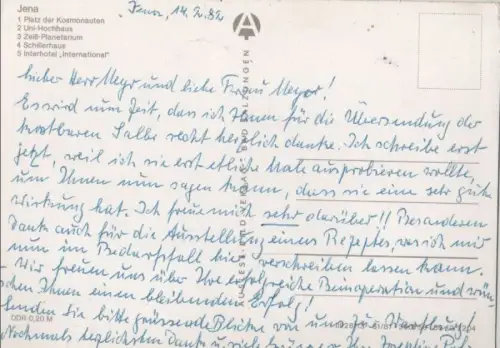 Jena
1 Platz der Kosmonauten
2 Uni-Hochhaus
3 Zeiß-Planetarium
4 Schillerhaus
5 Interhotel „International"
Jena, 14.2.82
Lieber Herr Meyer und liebe Frau Meyer!
Es wird nun Zeit, dass ich Ihnen für die Übersendung der
kostbaren Salbe recht herzlich danke. Ich schreibe erst
jetzt, weil ich sie erst etliche Male ausprobieren wollte,
um Ihnen nun sagen kann, dass sie eine sehr gute
Wirkung hat. Ich freue mich sehr darüber!! Besonderen
Dank auch für die Ausstellung eines Rezeptes, was ich mir
nun im Bedarfsfall hier verschreiben lassen kann.
Wir freuen uns über Ihre erfolgreiche Operation und wün-
schen Ihnen einen bleibenden Erfolg!
senden Sie bitte Blicken von uns
Nochmals herzlichsten Dank u. viele
AUSLESE-BILD-VERLAG BAD SALZUNGEN
DDR-0,20 M